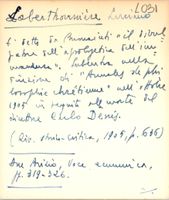 Laberthonnière Luciano L031
È detto da Buonaiuti "il divul
gatore dell'apologetica dell'im
manenza". Subentra nella
direzione di "Annales de phi
losophie chrétienne" nell'ottobre
1905 in seguito alla morte del
direttore Carlo Denis.
(Riv. storico-critica, 1905, p. 636)
p. 319-326.